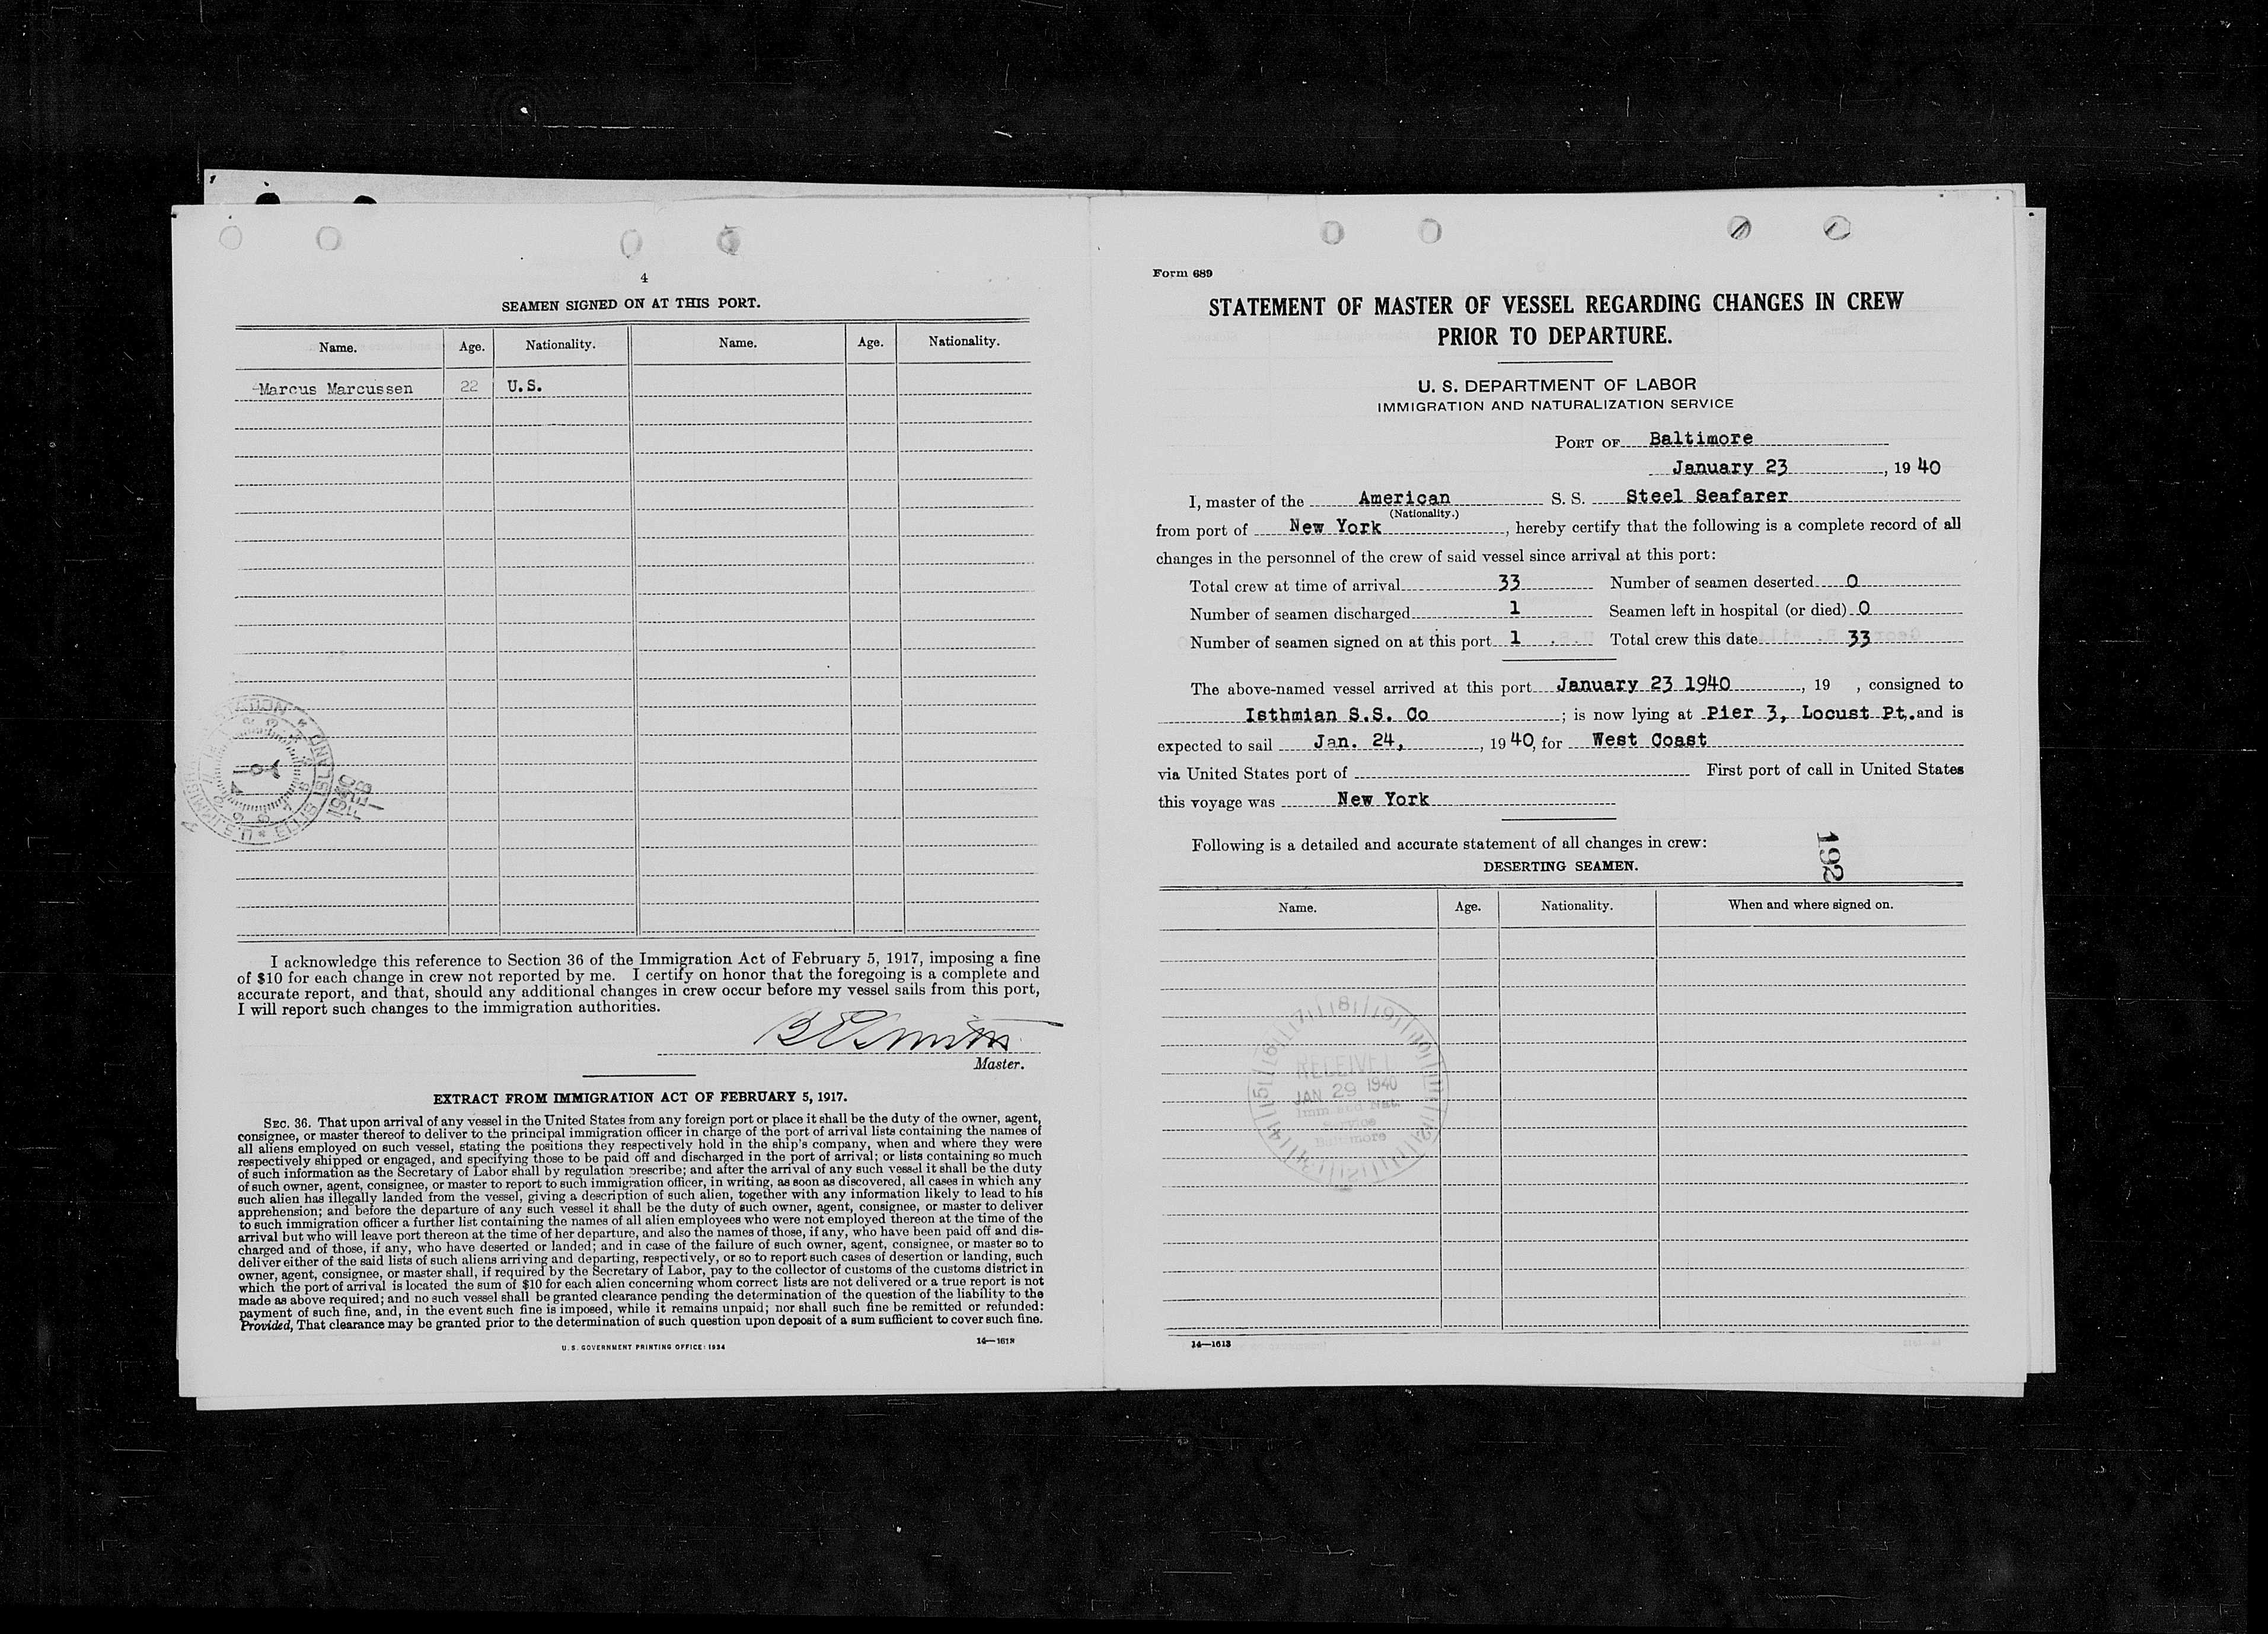 4
SEAMEN SIGNED ON AT THIS PORT.
Name. Age. Nationality. Name. Age. Nationality.
Marcus Marcussen 22 U.S.
I acknowledge this reference to Section 36 of the Immigration Act of February 5, 1917, imposing a fine
of $10 for each change in crew not reported by me. I certify on honor that the foregoing is a complete and
accurate report, and that, should any additional changes in crew occur before my vessel sails from this port,
I will report such changes to the immigration authorities.
Master.
EXTRACT FROM IMMIGRATION ACT OF FEBRUARY 5, 1917.
SEC. 36. That upon arrival of any vessel in the United States from any foreign port or place it shall be the duty of the owner, agent,
consignee, or master thereof to deliver to the principal immigration officer in charge of the port of arrival lists containing the names of
all aliens employed on such vessel, stating the positions they respectively hold in the ship's company, when and where they were
respectively shipped or engaged, and specifying those to be paid off and discharged in the port of arrival; or lists containing so much
of such information as the Secretary of Labor shall by regulation prescribe; and after the arrival of any such vessel it shall be the duty
of such owner, agent, consignee, or master to report to such immigration officer, in writing, as soon as discovered, all cases in which any
such alien has illegally landed from the vessel, giving a description of such alien, together with any information likely to lead to his
apprehension; and before the departure of any such vessel it shall be the duty of such owner, agent, consignee, or master to deliver
to such immigration officer a further list containing the names of all alien employees who were not employed thereon at the time of the
arrival but who will leave port thereon at the time of her departure, and also the names of those, if any, who have been paid off and dis-
charged and of those, if any, who have deserted or landed; and in case of the failure of such owner, agent, consignee, or master so to
deliver either of the said lists of such aliens arriving and departing, respectively, or so to report such cases of desertion or landing, such
owner, agent, consignee, or master shall, if required by the Secretary of Labor, pay to the collector of customs of the customs district in
which the port of arrival is located the sum of $10 for each alien concerning whom correct lists are not delivered or a true report is not
made as above required; and no such vessel shall be granted clearance pending the determination of the question of the liability to the
payment of such fine, and, in the event such fine is imposed, while it remains unpaid; nor shall such fine be remitted or refunded:
Provided, That clearance may be granted prior to the determination of such question upon deposit of a sum sufficient to cover such fine.
U. S. GOVERNMENT PRINTING OFFICE: 1934 14—1613
Form 689
STATEMENT OF MASTER OF VESSEL REGARDING CHANGES IN CREW
PRIOR TO DEPARTURE.
U. S. DEPARTMENT OF LABOR
IMMIGRATION AND NATURALIZATION SERVICE
PORT OF Baltimore
January 23, 1940
I, master of the American S. S. Steel Seafarer
(Nationality.)
from port of New York, hereby certify that the following is a complete record of all
changes in the personnel of the crew of said vessel since arrival at this port:
Total crew at time of arrival 33 Number of seamen deserted 0
Number of seamen discharged 1 Seamen left in hospital (or died) 0
Number of seamen signed on at this port 1 Total crew this date 33
The above-named vessel arrived at this port January 23 1940, 19 , consigned to
Isthmian S.S. Co; is now lying at Pier 3, Locust Pt. and is
expected to sail Jan. 24, , 1940, for West Coast
via United States port of First port of call in United States
this voyage was New York
Following is a detailed and accurate statement of all changes in crew:
192
DESERTING SEAMEN.
Name. Age. Nationality. When and where signed on.
RECEIVED
JAN 29 1940
Imm. and Nat.
Service
Baltimore
14—1613